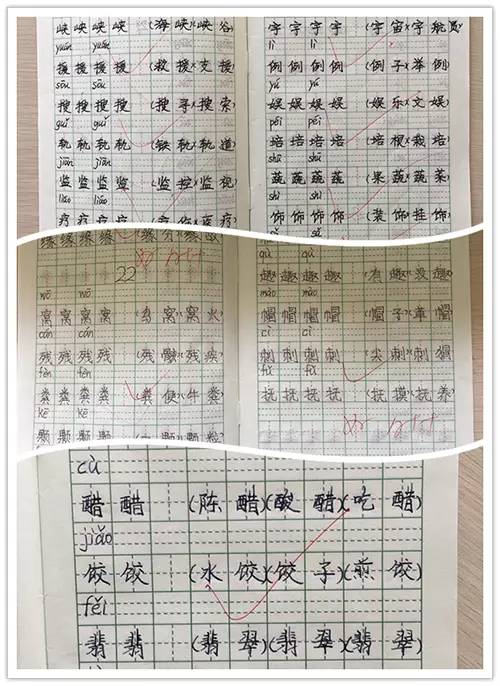 峡 峡 峡 峡 (海 峡)(峡 谷)
yuán yuán
援 援 援 援 (救 援)(支 援)
sōu sōu
搜 搜 搜 搜 (搜 寻)(搜 索)
guǐ guǐ
轨 轨 轨 轨 (铁 轨)(轨 道)
jiān jiān
监 监 监 监 (监 控)(监 视)
liáo liáo
疗 疗 疗 疗
宇 宇 宇 宇 (宇 宙)(宇 航员)
lì lì
例 例 例 例 (例 子)(举 例)
yú yú
娱 娱 娱 娱 (娱 乐)(文 娱)
péi péi
培 培 培 培 (培 根)(栽 培)
shū shū
蔬 蔬 蔬 蔬 (果 蔬)(蔬 菜)
shì shì
饰 饰 饰 饰 (装 饰)(挂 饰)
22
wō wō
窝 窝 窝 窝 (鸟 窝)(窝 火)
cán cán
残 残 残 残 (残 骸)(残 疾)
fèn fèn
粪 粪 粪 粪 (粪 便)(牛 粪)
kē kē
颗 颗 颗 颗
qù qù
趣 趣 趣 趣 (有 趣)(没 趣)
mào mào
帽 帽 帽 帽 (帽 子)(草 帽)
cì cì
刺 刺 刺 刺 (尖 刺)(刺 猬)
fǔ fǔ
抚 抚 抚 抚 (抚 摸)(抚 养)
cù
醋 醋 (陈 醋)(酸 醋)(吃 醋)
jiǎo
饺 饺 (水 饺)(饺 子)(煎 饺)
fěi
翡 翡 (翡 翠)(翡 翠)(翡 翠)